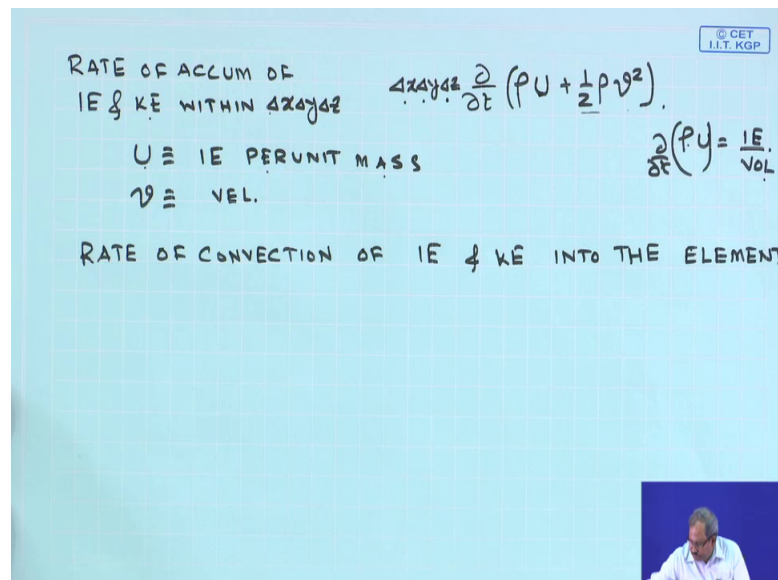 © CET
I.I.T. KGP
RATE OF ACCUM OF
IE & KE WITHIN ΔxΔyΔz
ΔxΔyΔz ∂/∂t (ρU + 1/2 ρv²).
U ≡ IE PER UNIT MASS
∂/∂t (ρU) = IE/VOL.
v ≡ VEL.
RATE OF CONVECTION OF IE & KE INTO THE ELEMENT